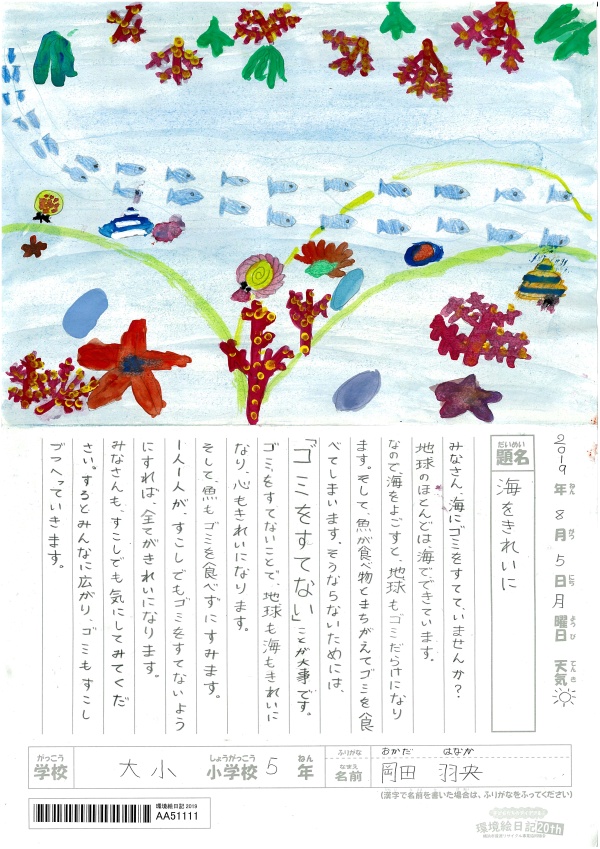 2019年 8月 5日 月曜日 天気
ねん がつ にち ようび てんき
だいめい
題名
海をきれいに
みなさん、海にゴミをすてて、いませんか?
地球のほとんどは、海でできています。
なので、海をよごすと、地球もゴミだらけになり
ます。そして、魚が食べ物とまちがえてゴミを食
べてしまいます。そうならないためには、
「ゴミをすてない」ことが大事です。
ゴミをすてないことで、地球も海もきれいに
なり、心もきれいになります。
そして、魚もゴミを食べずにすみます。
1人1人が、すこしでもゴミをすてないよう
にすれば、全てがきれいになります。
みなさんも、すこしでも気にしてみてくだ
さい。するとみんなに広がり、ゴミもすこし
づつへっていきます。
がっこう しょうがっこう ねん
学校 大小 小学校 5年
ふりがな おかだ はなか
なまえ
名前 岡田 羽央
(漢字で名前を書いた場合は、ふりがなをふってください)
環境絵日記 2019
AA51111
環境絵日記20th